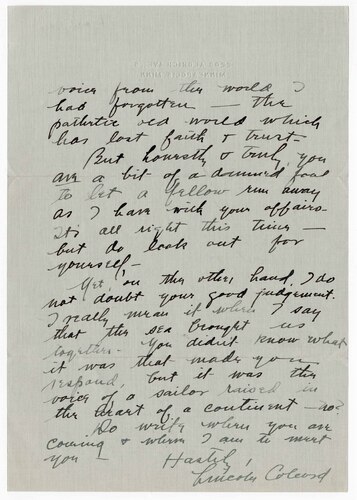 voice from the world I
had forgotten — the
pathetic old world which
has lost faith & trust -
But honestly & truly, you
are a bit of a damned fool
to let a fellow run away
as I have with your affairs.
Its all right this time —
but do look out for
yourself, —
Yet, on the other hand, I do
not doubt your good judgement.
I really mean it when I say
that the sea brought us
together. You didn't know what
it was that made you
respond, but it was the
voice of a sailor raised in
the heart of a continent — no?
Do write when you are
coming & where I am to meet
you —
Hastily,
Lincoln Colcord